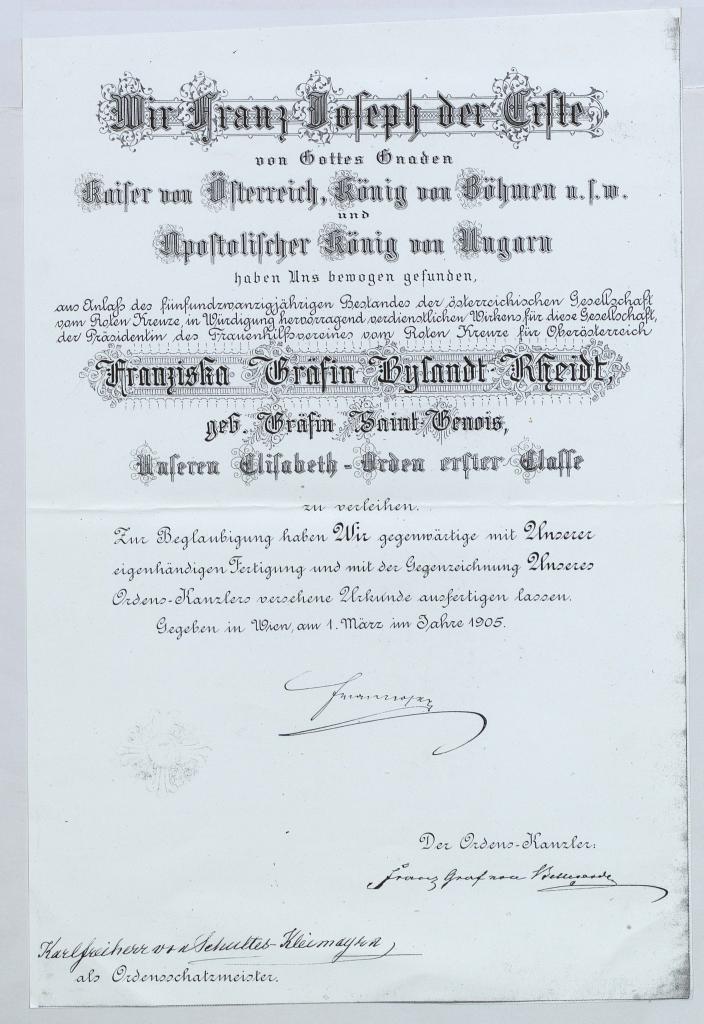 Wir Franz Joseph der Erste,
von Gottes Gnaden
Kaiser von Österreich, König von Böhmen u. s. w.
und
Apostolischer König von Ungarn
haben Uns bewogen gefunden,
aus Anlaß des fünfundzwanzigjährigen Bestandes der österreichischen Gesellschaft
vom Roten Kreuze, in Würdigung hervorragend verdienstlichen Wirkens für diese Gesellschaft,
der Präsidentin des Frauenhilfsvereines vom Roten Kreuze für Oberösterreich
Franziska Gräfin Bylandt-Rheidt,
geb. Gräfin Saint-Genois,
Unseren Elisabeth-Orden erster Classe
zu verleihen.
Zur Beglaubigung haben Wir gegenwärtige mit Unserer
eigenhändigen Fertigung und mit der Gegenzeichnung Unseres
Ordens-Kanzlers versehene Urkunde ausfertigen lassen.
Gegeben in Wien, am 1. März im Jahre 1905.
Der Ordens-Kanzler:
Franz Graf von
Karl Freiherr von Schultes-Kleimayrn
als Ordensschatzmeister.